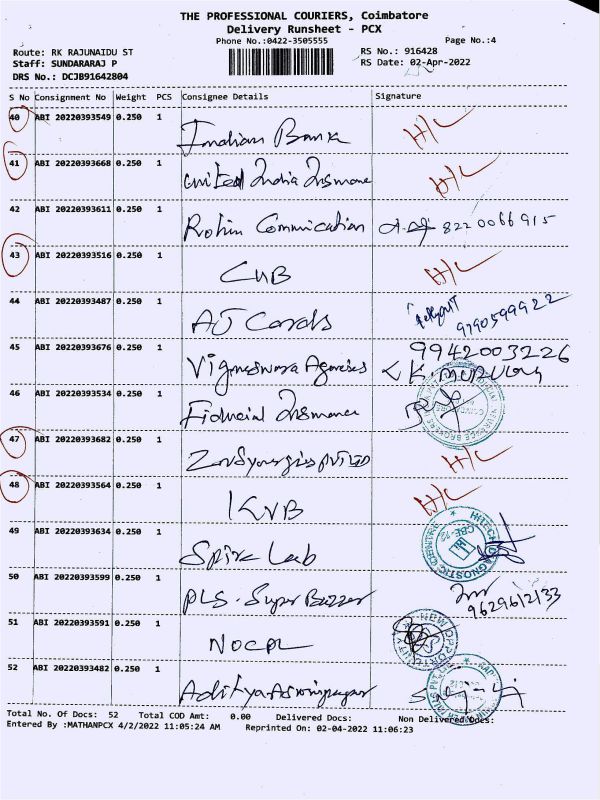 THE PROFESSIONAL COURIERS, Coimbatore
Delivery Runsheet - PCX
Phone No.:0422-3505555
Page No.:4
Route: RK RAJUNAIDU ST
RS No.: 916428
Staff: SUNDARARAJ P
RS Date: 02-Apr-2022
DRS No.: DCJB91642804
S No Consignment No Weight PCS Consignee Details Signature
40 ABI 20220393549 0.250 1
Indian Bank H/C
41 ABI 20220393668 0.250 1
United India Insurance H/C
42 ABI 20220393611 0.250 1
Rohin Commnication 8220066915
43 ABI 20220393516 0.250 1
CUB H/C
44 ABI 20220393487 0.250 1
AJ Cards 9790599922
45 ABI 20220393676 0.250 1
Vigneswara Agencies 9942003226
46 ABI 20220393534 0.250 1
Insurance
47 ABI 20220393682 0.250 1
PVT LTD H/C
48 ABI 20220393564 0.250 1
KVB H/C
49 ABI 20220393634 0.250 1
Lab
50 ABI 20220393599 0.250 1
PLS. Super Bazzer 9629612133
51 ABI 20220393591 1
NOCPL
52 ABI 20220393482 0.250 1
Aditya
Total No. Of Docs: 52 Total COD Amt: 0.00 Delivered Docs: Non Delivered Docs:
Entered By :MATHANPCX 4/2/2022 11:05:24 AM Reprinted On: 02-04-2022 11:06:23